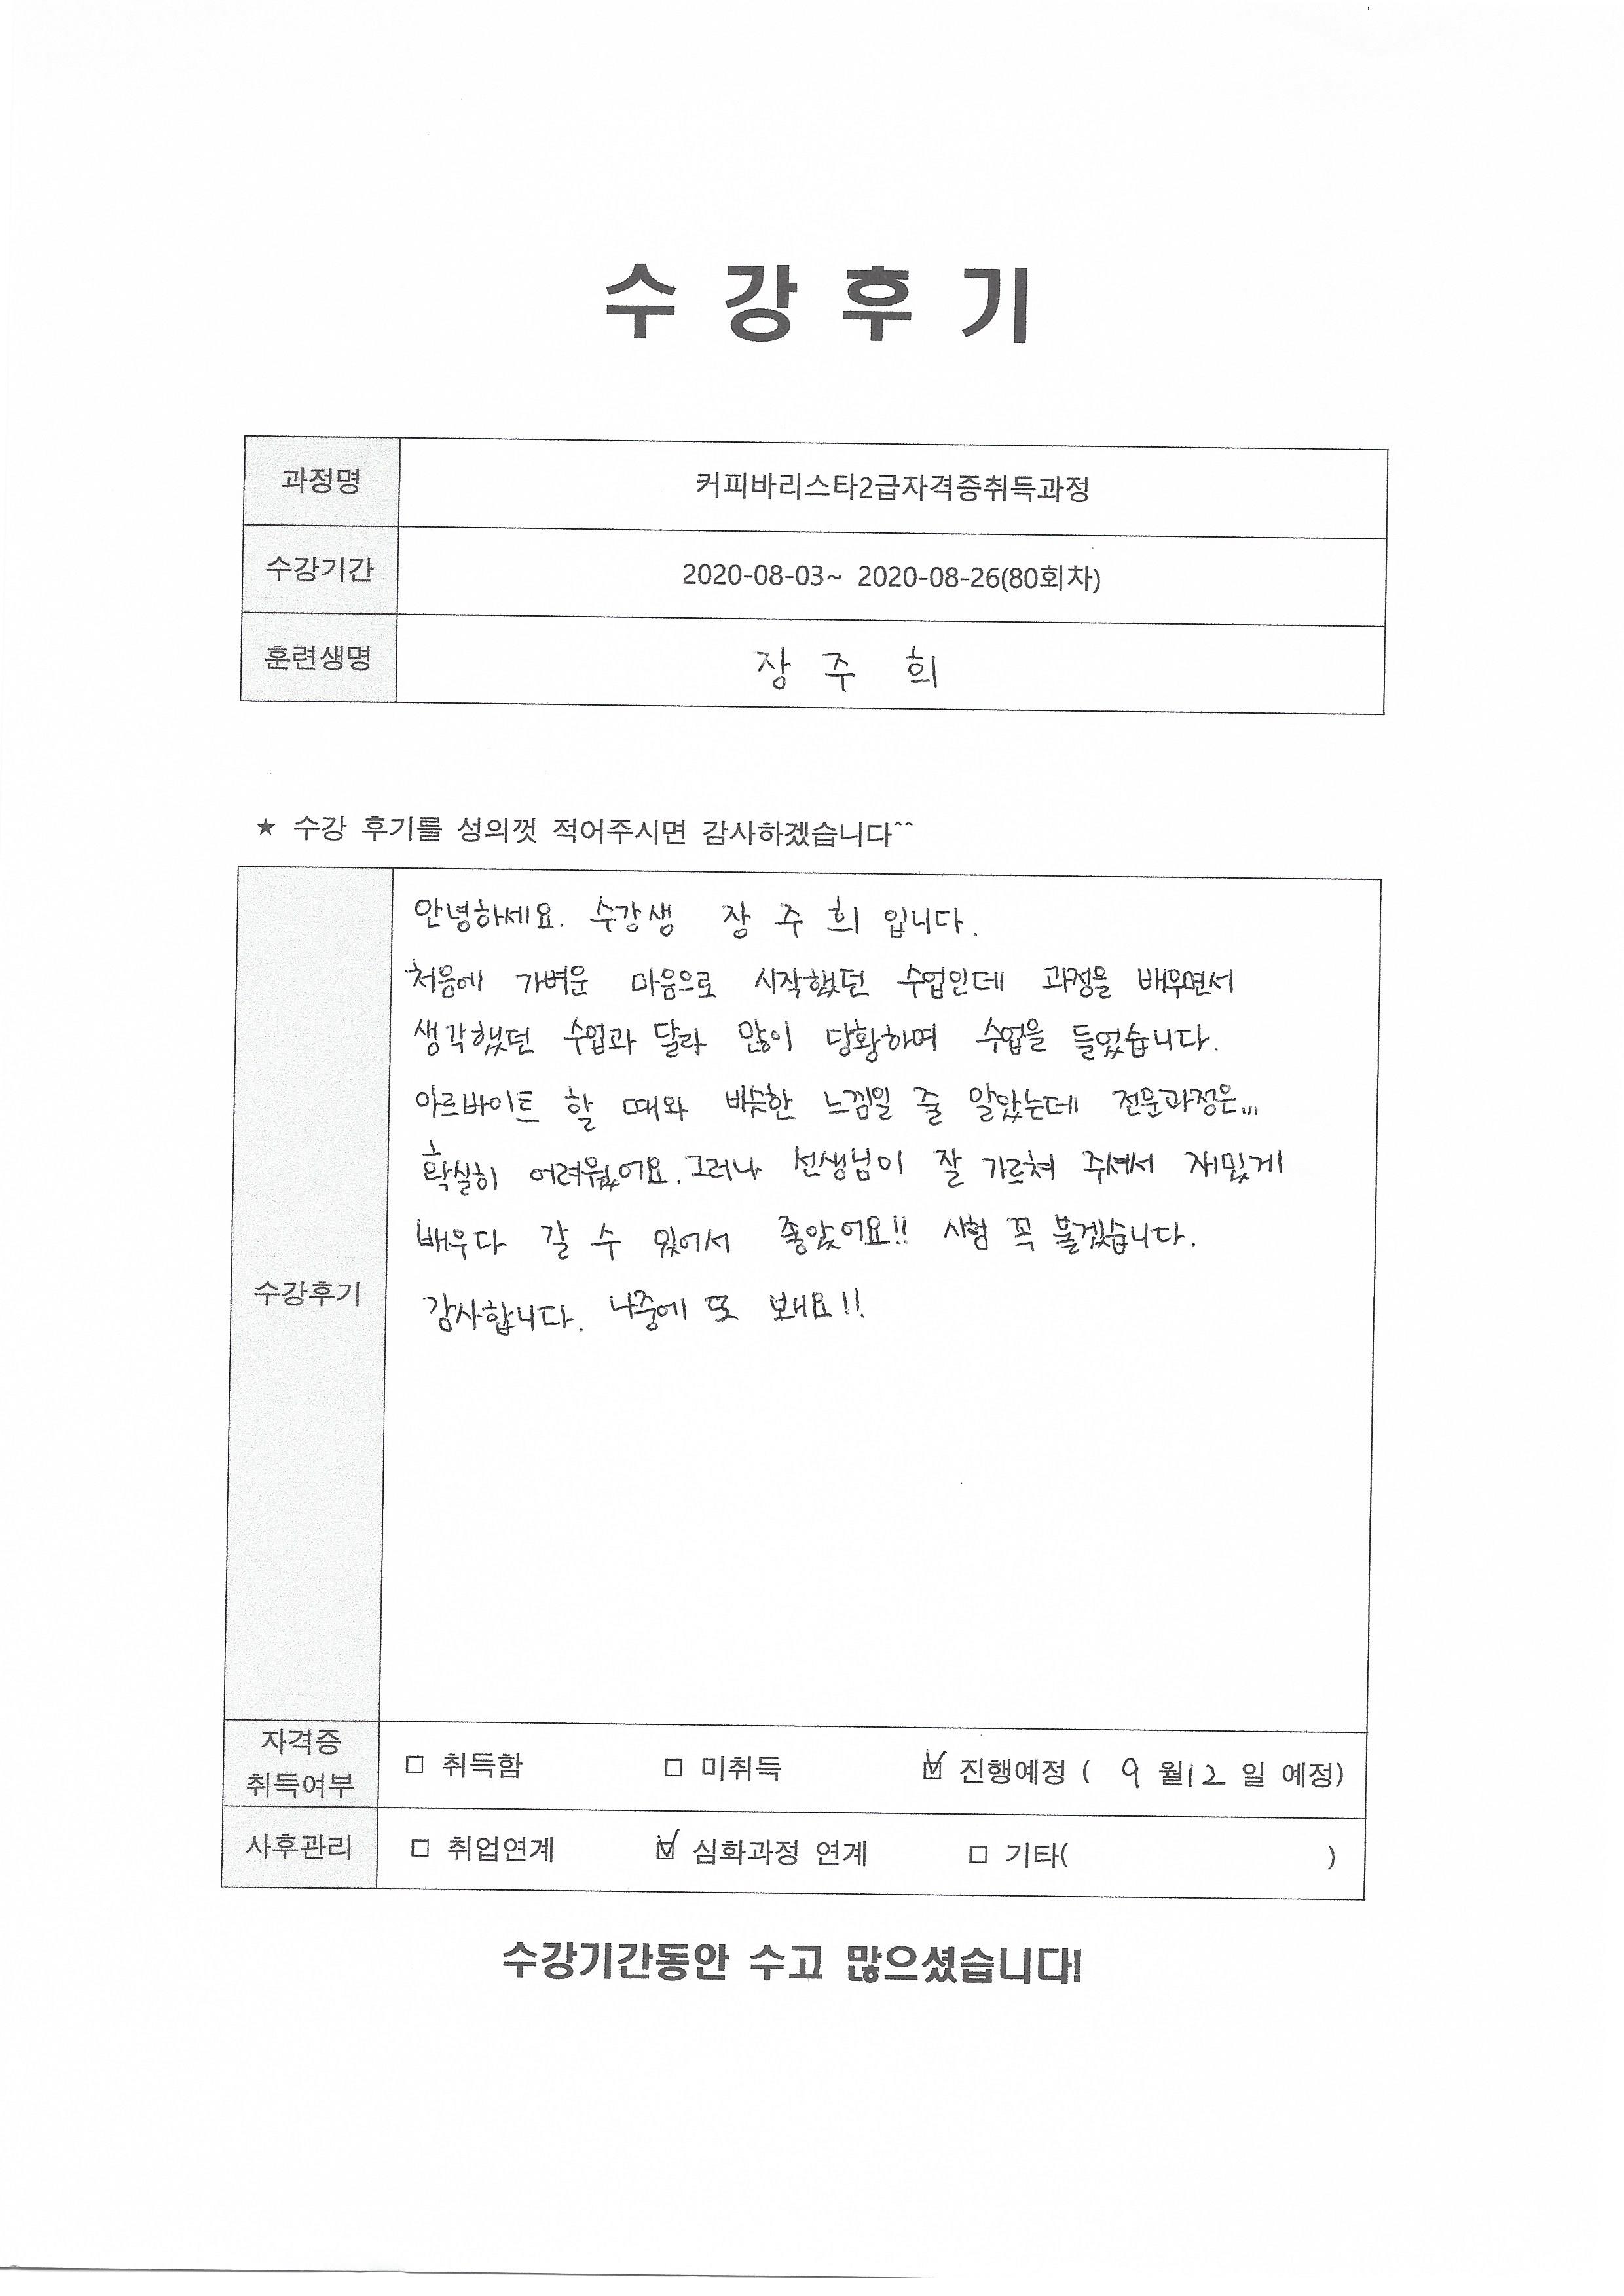 수 강 후 기
과정명 커피바리스타2급자격증취득과정
수강기간 2020-08-03~ 2020-08-26(80회차)
훈련생명 장 주 희
★ 수강 후기를 성의껏 적어주시면 감사하겠습니다^^
수강후기
안녕하세요. 수강생 장 주 희 입니다.
처음에 가벼운 마음으로 시작했던 수업인데 과정을 배우면서
생각했던 수업과 달라 많이 당황하며 수업을 들었습니다.
아르바이트 할 때와 비슷한 느낌일 줄 알았는데 전문과정은...
확실히 어려웠어요. 그러나 선생님이 잘 가르쳐 주셔서 재밌게
배우다 갈 수 있어서 좋았어요!! 시험 꼭 붙겠습니다.
감사합니다. 나중에 또 보내요!!
자격증
취득여부 □ 취득함 □ 미취득 ☑ 진행예정 ( 9 월 12 일 예정)
사후관리 □ 취업연계 ☑ 심화과정 연계 □ 기타( )
수강기간동안 수고 많으셨습니다!